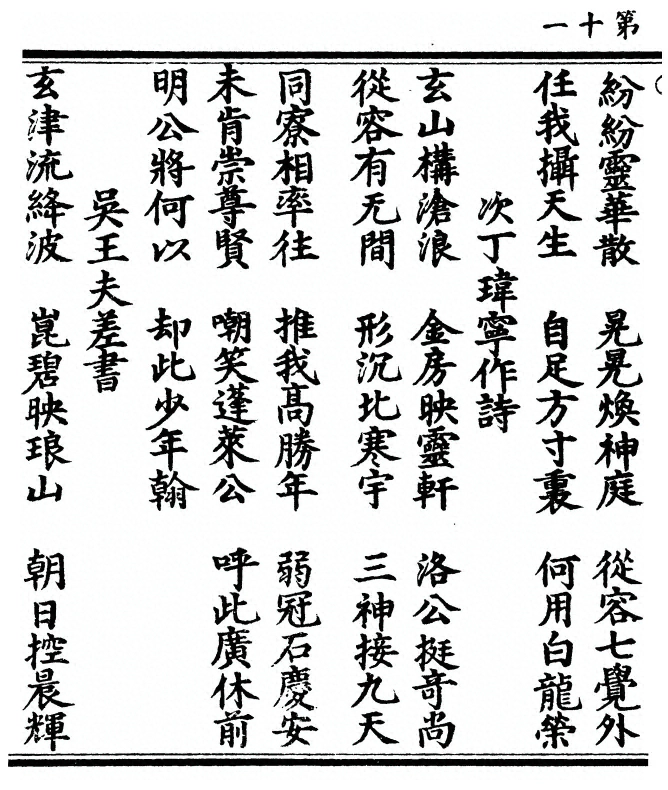 第十一
紛紛靈華散 晃晃煥神庭 從容七覺外
任我攝天生 自足方寸裏 何用白龍榮
次丁瑋寧作詩
玄山構滄浪 金房映靈軒 洛公挺奇尚
從容有无間 形沉北寒宇 三神接九天
同寮相率往 推我高勝年 弱冠石慶安
未肯崇尊賢 嘲笑蓬萊公 呼此廣休前
明公將何以 却此少年翰
吳王夫差書
玄津流絳波 崑碧映琅山 朝日控晨輝